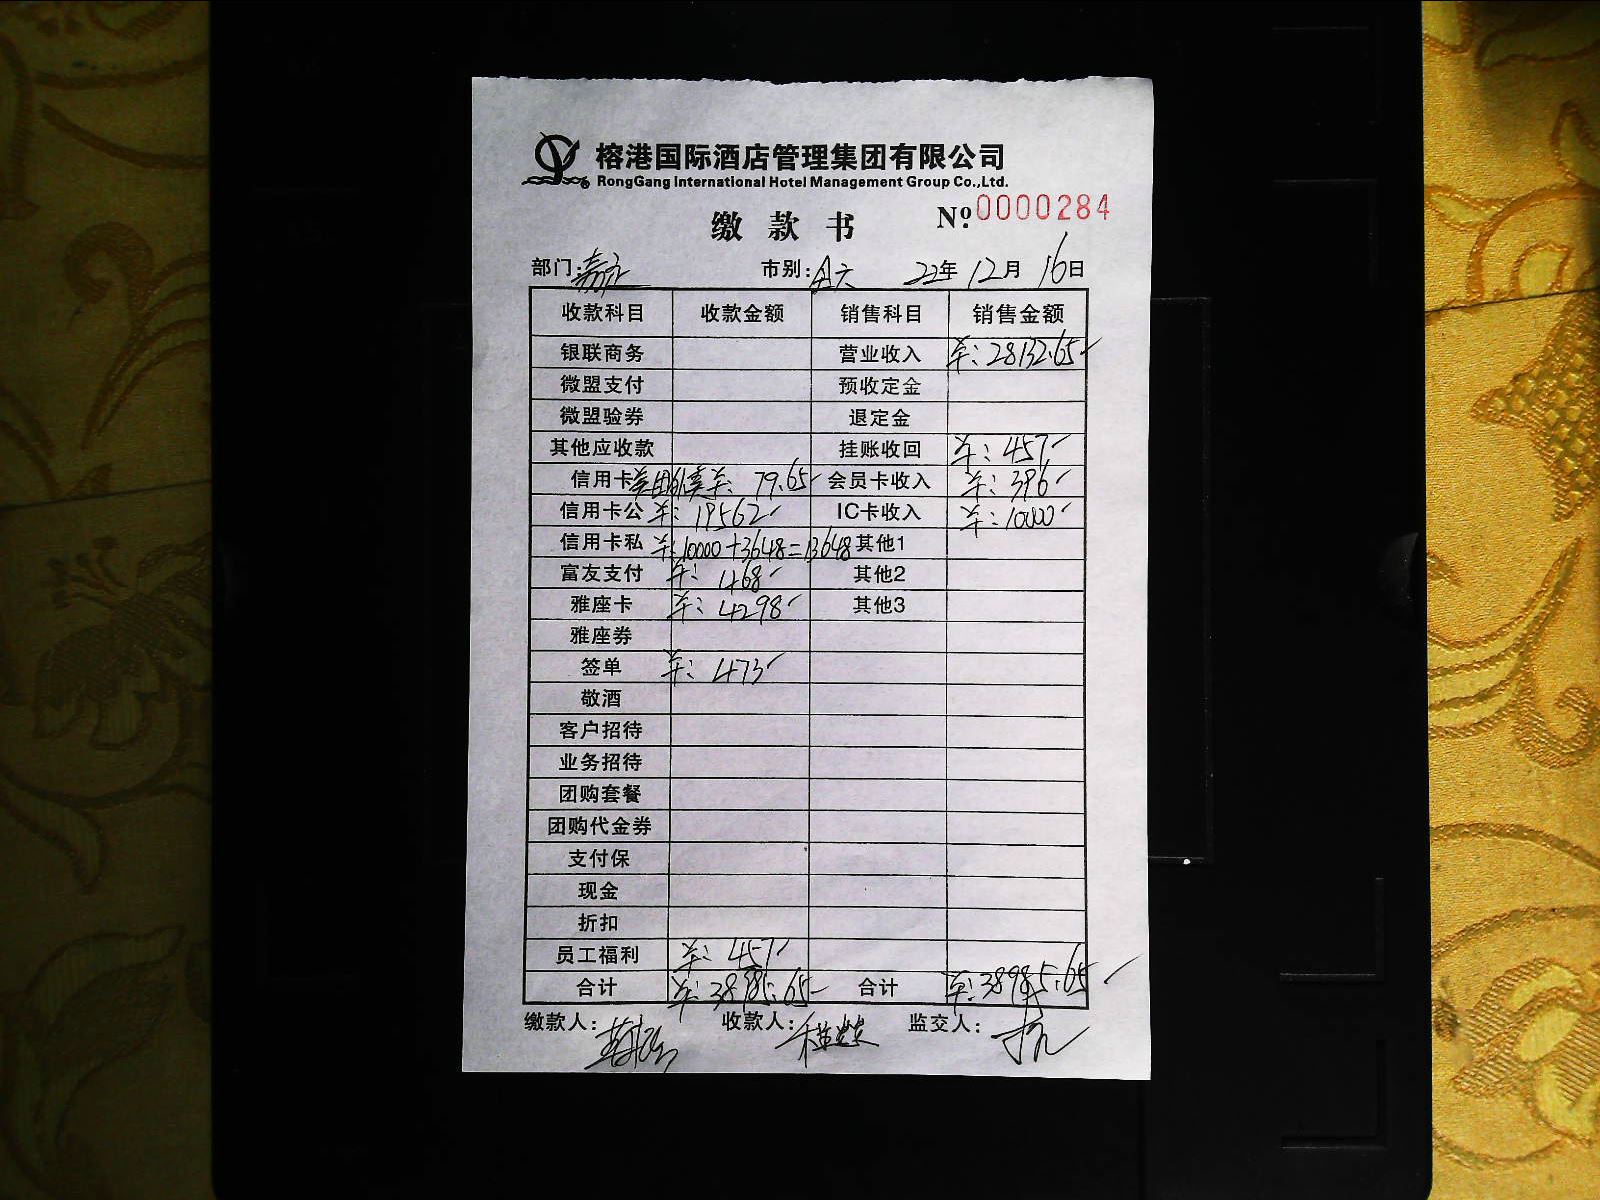 榕港国际酒店管理集团有限公司
RongGang International Hotel Management Group Co.,Ltd.
缴款书 Nº 0000284
部门: 市别: 22年 12月 16日
收款科目 收款金额 销售科目 销售金额
银联商务 营业收入 ¥: 28132.65
微盟支付 预收定金
微盟验券 退定金
其他应收款 挂账收回 ¥: 457
信用卡 美团外卖 ¥: 79.65 会员卡收入 ¥: 396
信用卡公 ¥: 19562 IC卡收入 ¥: 10000
信用卡私 ¥: 10000+3648=13648 其他1
富友支付 ¥: 468 其他2
雅座卡 ¥: 4298 其他3
雅座券
签单 ¥: 473
敬酒
客户招待
业务招待
团购套餐
团购代金券
支付保
现金
折扣
员工福利 ¥: 457
合计 ¥: 38985.65 合计 ¥: 38985.65
缴款人: 收款人: 监交人: